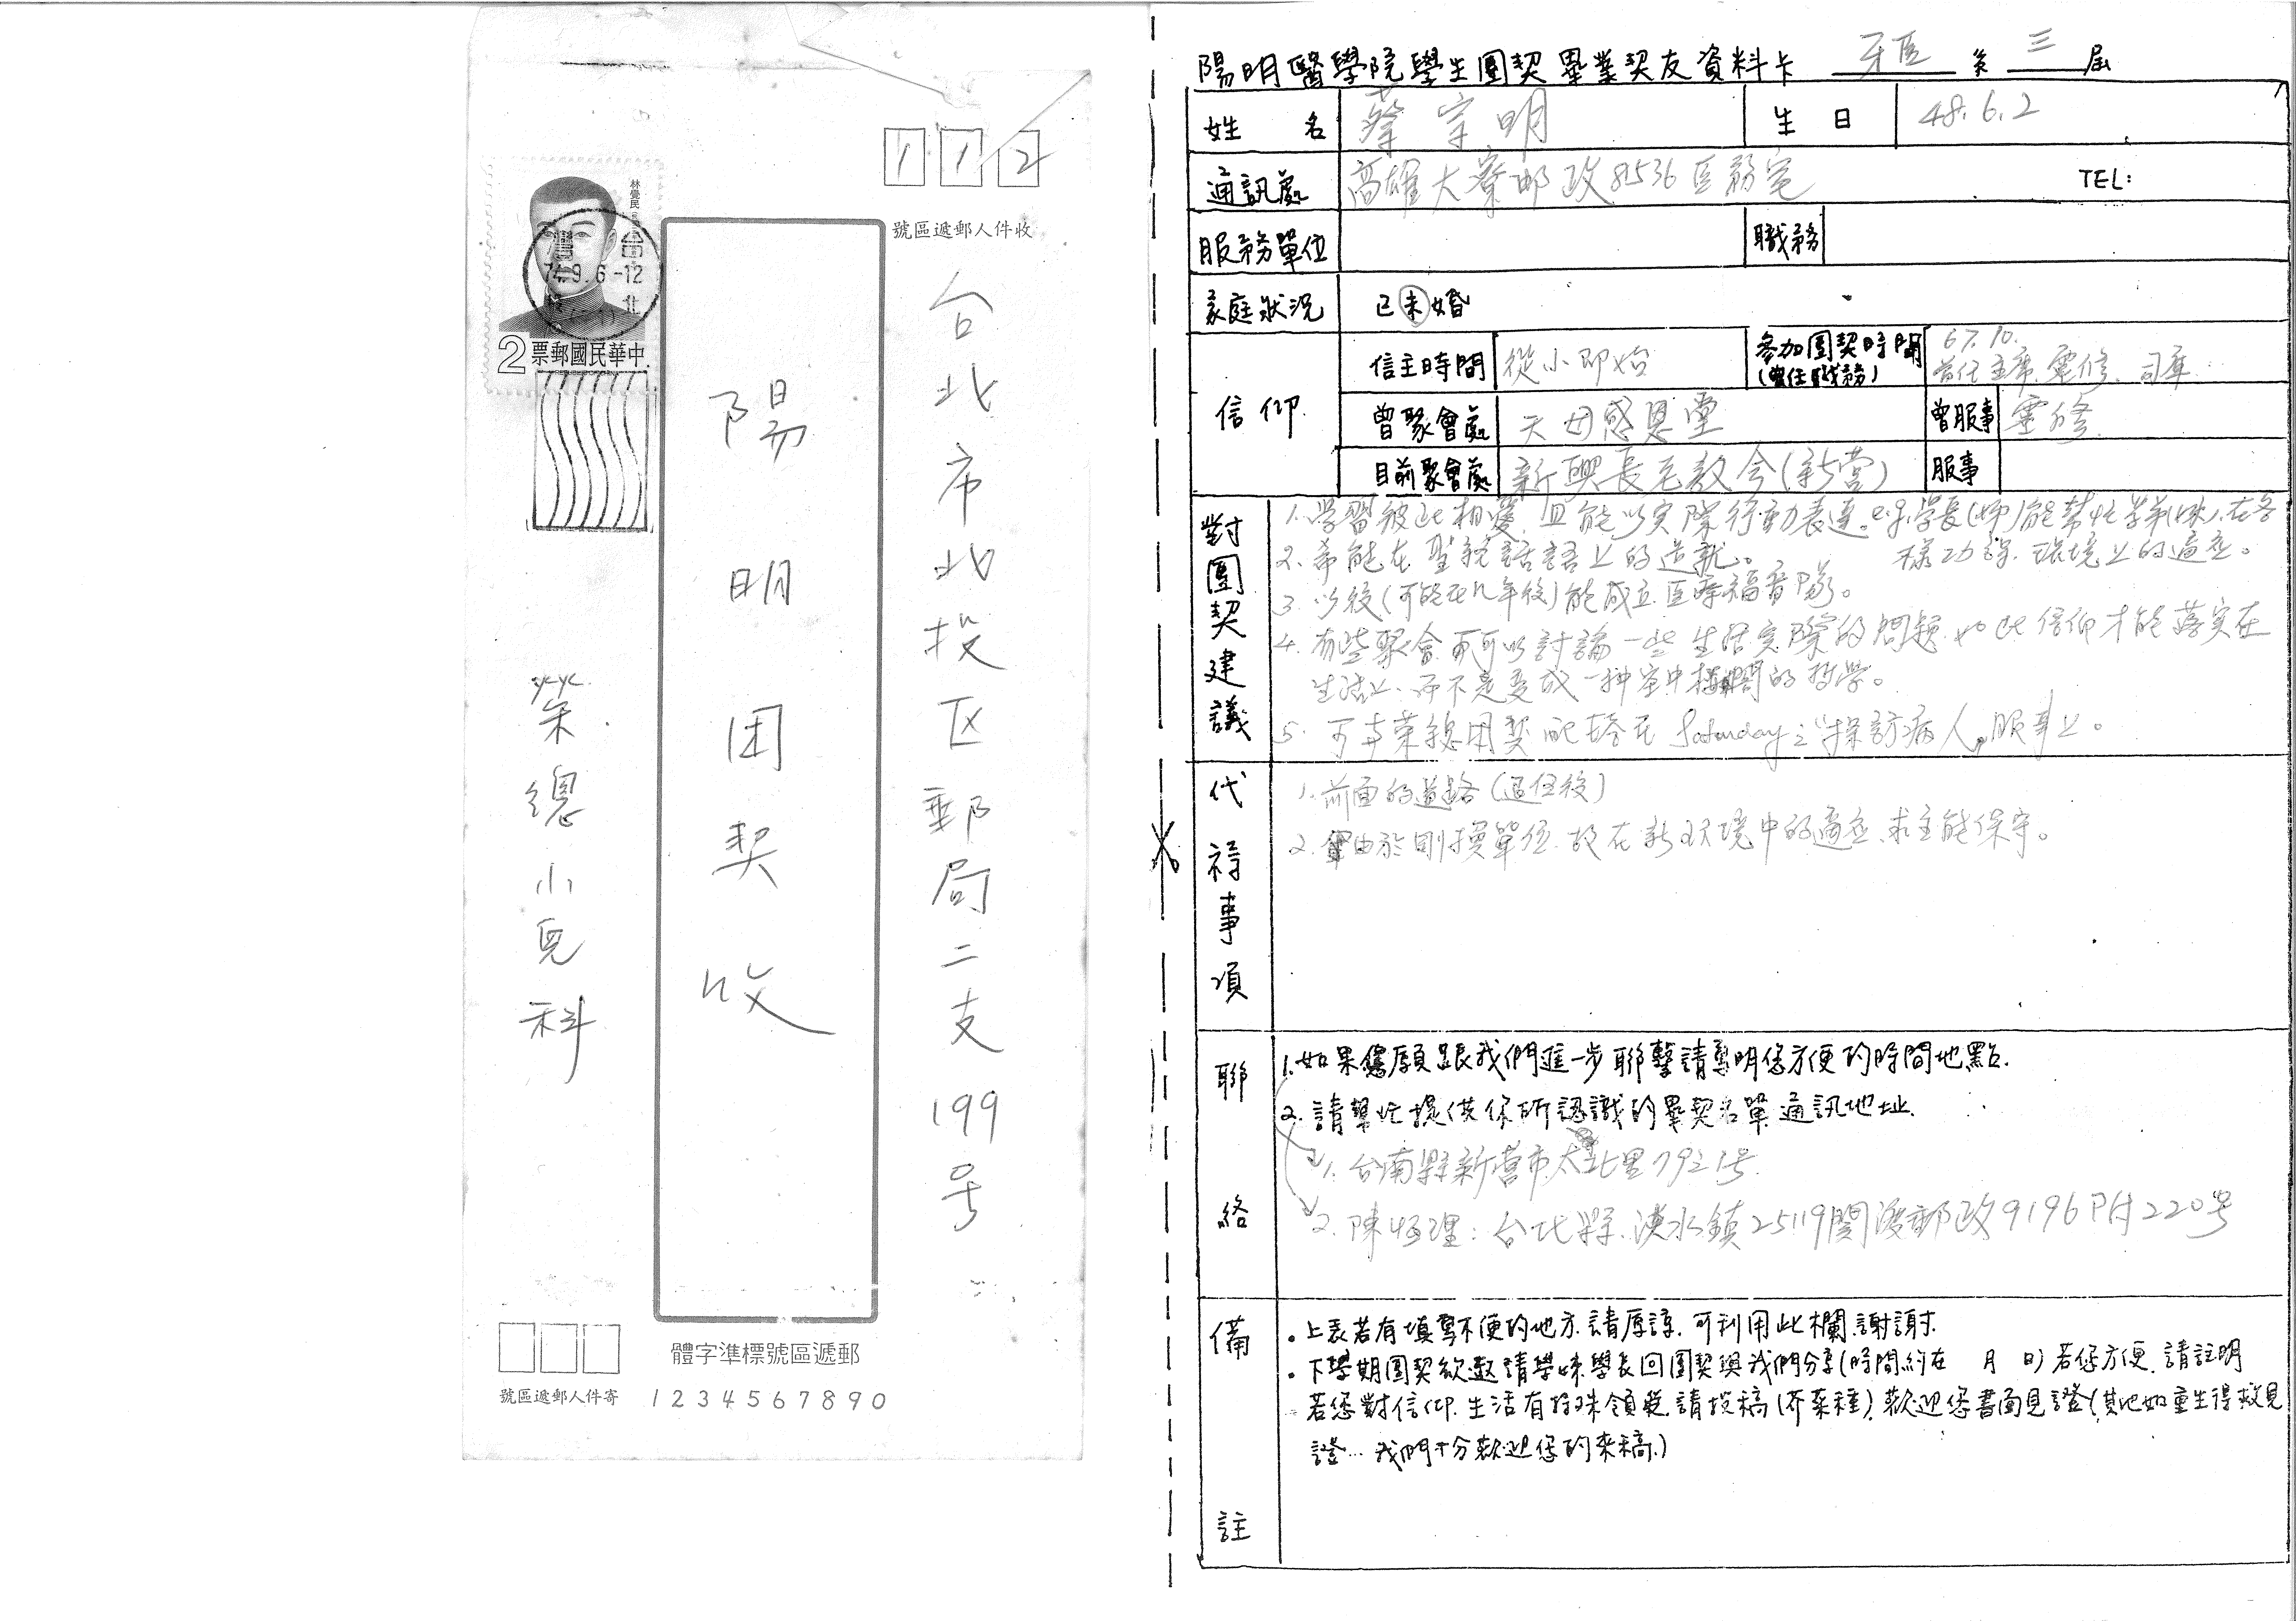 112
號區遞郵人件收
林覺民
台
74.9.6-12
北
2 票郵國民華中
台北市北投区郵局二支199号
陽明团契收
荣總小兒科
體字準標號區遞郵
號區遞郵人件寄
1 2 3 4 5 6 7 8 9 0
陽明醫學院學生團契畢業契友資料卡 牙医 系 三 屆
姓名 蔡宗明 生日 48.6.2
通訊處 高雄大寮郵政81536医務室 TEL:
服務單位 職務
家庭狀況 已未婚
信仰
信主時間 從小即始 參加團契時間(曾任職務) 67.10. 首任主席.靈修.司庫
曾聚會處 天母感恩堂 曾服事 靈修
目前聚會處 新興長老教会(新营) 服事
對團契建議
1.学習彼此相愛,且能以實際行動表達。e.g.學長(姊)能幫忙学弟(妹).在各
樣功課.環境上的適应。
2.希能在聖經話語上的造就。
3.以後(可能在幾年後)能成立医療福音隊。
4.有些聚會可以討論一些生活实際的問題.如此信仰才能落实在
生活上.而不是变成一种空中樓閣的哲學。
5.可与荣總团契配搭在Saturday之"探訪病人"服事上。
代禱事項
1.前面的道路(退伍後)
2.由於剛換單位.故在新环境中的適应.求主能保守。
聯絡
1.如果您願跟我們進一步聯繫請寫明您方便的時間地點.
2.請幫忙提供你所認識的畢契名單.通訊地址.
1.台南縣新营市太北里79之1号.
2.陳恆理:台北縣.淡水鎮25119關渡郵政9196附220号
備註
•上表若有填寫不便的地方.請原諒.可利用此欄.謝謝.
•下學期團契欲邀請學姊學長回團契與我們分享(時間約在 月 日)若您方便.請註明
若您對信仰.生活有特殊領受.請投稿(芥菜種).歡迎您書面見證(其他如重生得救見
證…我們十分歡迎您的來稿.)